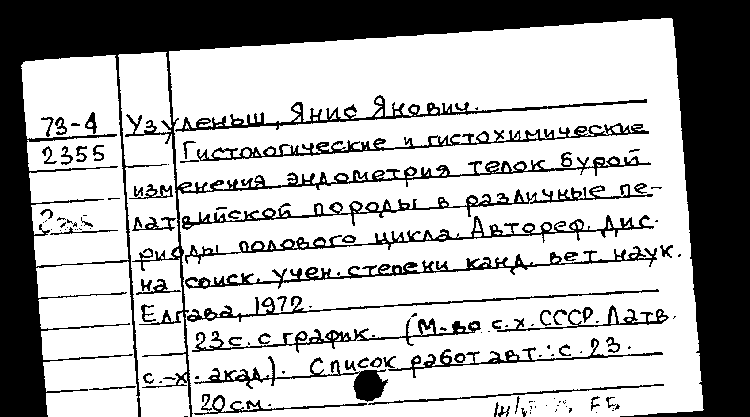 73-4 Узуленьш, Янис Янович.
2355 Гистологические и гистохимические
изменения эндометрия телок бурой
латвийской породы в различные пе-
риоды полового цикла. Автореф. дис.
на соиск. учен. степени канд. вет. наук.
Елгава, 1972.
23 с. с график. (М-во с.х. СССР. Латв.
с.-х. акад.). Список работ авт.: с. 23.
20 см.